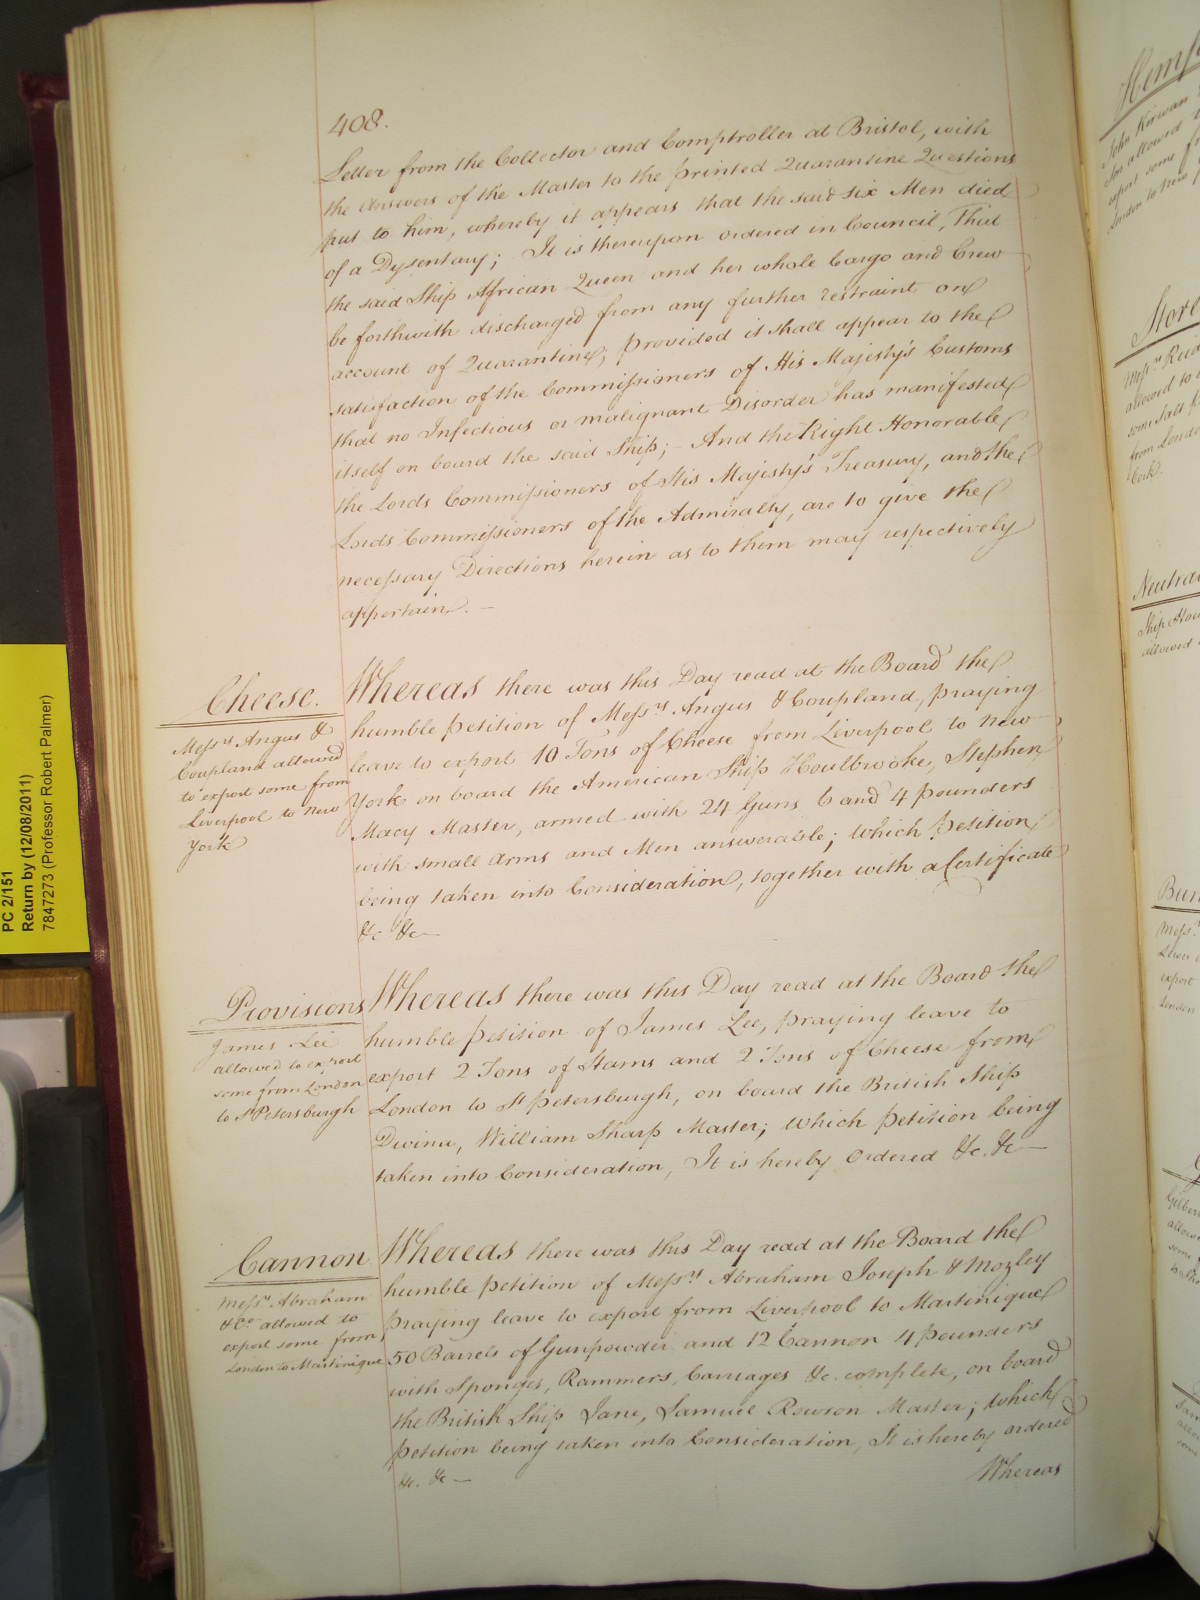 408.
Letter from the Collector and Comptroller at Bristol, with
the Answers of the Master to the printed Quarantine Questions
put to him, whereby it appears that the said six Men died
of a Dysentary; It is thereupon ordered in Council, That
the said Ship African Queen and her whole Cargo and Crew
be forthwith discharged from any further restraint on
account of Quarantine, provided it shall appear to the
satisfaction of the Commissioners of His Majesty's Customs
that no Infectious or malignant Disorder has manifested
itself on board the said Ship; - And the Right Honorable
the Lords Commissioners of His Majesty's Treasury, and the
Lords Commissioners of the Admiralty, are to give the
necessary Directions herein as to them may respectively
appertain. -
Cheese.
Messrs Angus &
Coupland allowed
to export some from
Liverpool to New
York
Whereas there was this Day read at the Board the
humble Petition of Messrs Angus & Coupland, praying
leave to export 10 Tons of Cheese from Liverpool to New
York on board the American Ship Houlbrooke, Stephen
Macy Master, armed with 24 Guns 6 and 4 pounders
with small Arms and Men answerable; Which Petition
being taken into Consideration, together with a Certificate
&c &c
Provisions
James Lee
allowed to export
some from London
to St Petersburgh
Whereas there was this Day read at the Board the
humble Petition of James Lee, praying leave to
export 2 Tons of Hams and 2 Tons of Cheese from
London to St Petersburgh, on board the British Ship
Dwina, William Sharp Master; Which Petition being
taken into Consideration, It is hereby Ordered &c. &c
Cannon
Messrs Abraham
& Co. allowed to
export some from
London to Martinique
Whereas there was this Day read at the Board the
humble Petition of Messrs Abraham Joseph & Mozley
Praying leave to export from Liverpool to Martinique
50 Barrels of Gunpowder and 12 Cannon 4 pounders
with Sponges, Rammers, Carriages &c. complete, on board
the British Ship Jane, Samuel Rowson Master; Which
Petition being taken into Consideration, It is hereby ordered
&c. &c -
Whereas
PC 2/151
Return by (12/08/2011)
7847273 (Professor Robert Palmer)
John Kirwan
Son allowed
export some
London to New
Store
Messrs
allowed to
some Salt
from London
Cork.
Neutral
Ship
allowed
Messrs
export
London
allowed
some